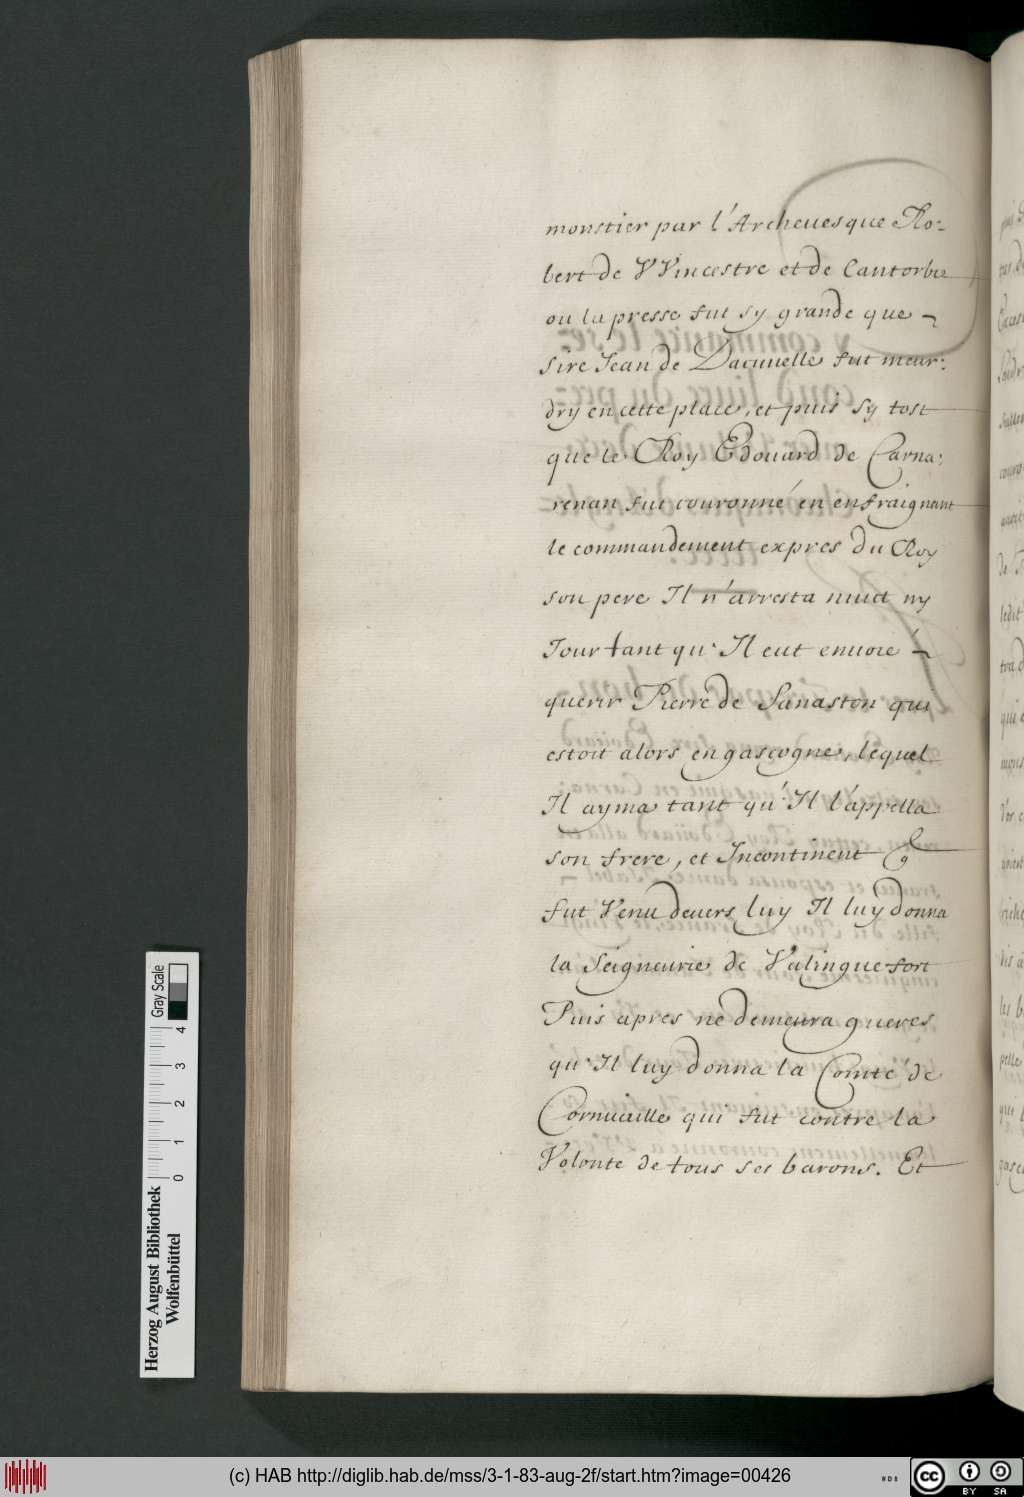 monstier par l'Archeuesque Ro-
bert de VVincestre et de Cantorbie
ou la presse fut sy grande que
sire Jean de Dacunelle fut meur:
dry en cette place, et puis sy tost
que le Roy Edouard de Carna:
renan fut couronné en enfraignant
le commandement expres du Roy
son pere Il n'arresta nuict ny
Jour tant qu'Il eut enuoié
querir Pierre de Sanaston qui
estoit alors en gascogne, lequel
Il ayma tant qu'Il l'appella
son frere, et Incontinent
fut Venu deuers luy Il luy donna
la Seigneurie de Valinguefort
Puis apres ne demeura gueres
qu'Il luy donna la Comté de
Cornuaille qui fut contre la
Volonte de tous ses barons. Et
Herzog August Bibliothek
Wolfenbüttel
Gray Scale
0 1 2 3 4
(c) HAB http://diglib.hab.de/mss/3-1-83-aug-2f/start.htm?image=00426
cc BY SA